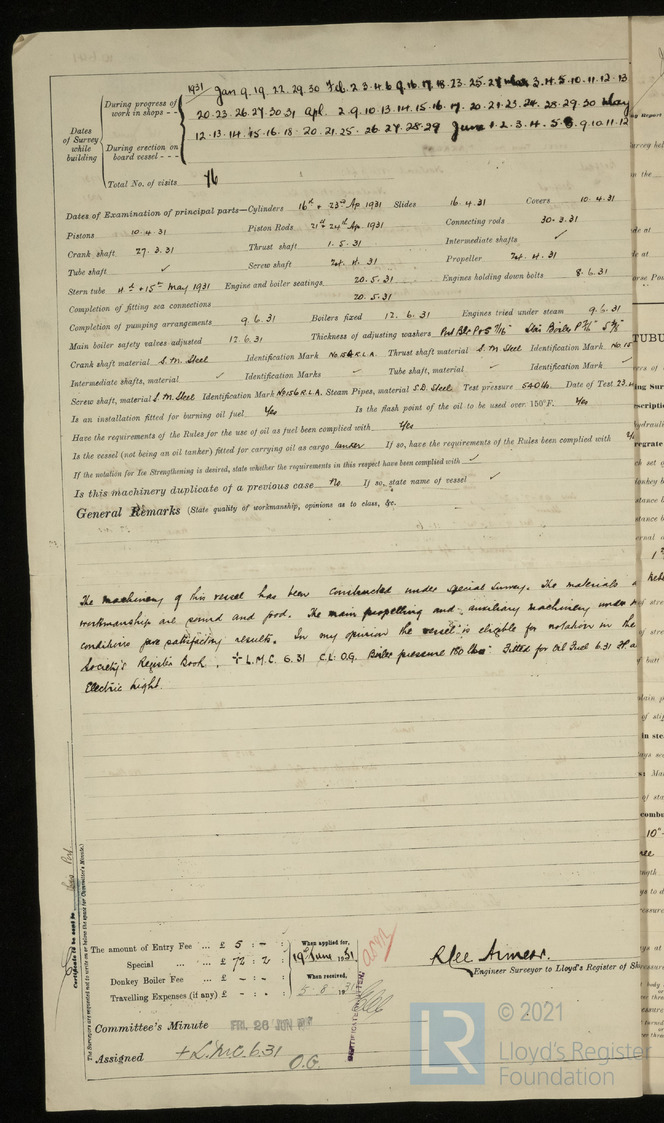 1931 Jan 9. 19. 22. 29. 30 Feb. 2. 3. 4. 6. 9. 16. 17. 18. 23. 25. 27 Mar 3. 4. 5. 10. 11. 12. 13
During progress of work in shops - -
20. 23. 26. 27. 30. 31 Apl. 2. 9. 10. 13. 14. 15. 16. 17. 20. 21. 23. 24. 28. 29. 30 May
Dates of Survey while building
During erection on board vessel - - -
12. 13. 14. 15. 16. 18. 20. 21. 25. 26. 27. 28. 29 June 1. 2. 3. 4. 5. 8. 9. 10. 11. 12
Total No. of visits 76
Dates of Examination of principal parts—Cylinders 16th + 23rd Ap 1931 Slides 16.4.31 Covers 10.4.31
Pistons 10.4.31 Piston Rods 21st + 24th Ap. 1931 Connecting rods 30.3.31
Crank shaft 27.3.31 Thrust shaft 1.5.31 Intermediate shafts ✓
Tube shaft ✓ Screw shaft 24.4.31 Propeller 24.4.31
Stern tube 4th + 15th May 1931 Engine and boiler seatings 20.5.31 Engines holding down bolts 8.6.31
Completion of fitting sea connections 20.5.31
Completion of pumping arrangements 9.6.31 Boilers fixed 12.6.31 Engines tried under steam 9.6.31
Main boiler safety valves adjusted 12.6.31 Thickness of adjusting washers Port Blr P 5/16 S 7/16 Star Boiler
Crank shaft material S.M. Steel Identification Mark No. 154 R.L.A. Thrust shaft material S.M. Steel Identification Mark No 15
Intermediate shafts, material ✓ Identification Marks ✓ Tube shaft, material ✓ Identification Mark ✓
Screw shaft, material S.M. Steel Identification Mark No 156 R.L.A. Steam Pipes, material S.D. Steel Test pressure 540 lb. Date of Test 23.
Is an installation fitted for burning oil fuel Yes Is the flash point of the oil to be used over 150°F. Yes
Have the requirements of the Rules for the use of oil as fuel been complied with Yes
Is the vessel (not being an oil tanker) fitted for carrying oil as cargo tanker If so, have the requirements of the Rules been complied with
If the notation for Ice Strengthening is desired, state whether the requirements in this respect have been complied with ✓
Is this machinery duplicate of a previous case No If so, state name of vessel ✓
General Remarks (State quality of workmanship, opinions as to class, &c.
The machinery of this vessel has been constructed under special survey. The materials
workmanship are sound and good. The main propelling and auxiliary machinery under
conditions gave satisfactory results. In my opinion the vessel is eligible for notation in the
Society's Register Book. + L.M.C. 6.31 C.L. O.G. Boiler pressure 180 lbs. Fitted for Oil Fuel 6.31 F.P. a
Electric Light.
Certificate to be sent to
The Surveyors are requested not to write on or below the space for Committee's Minute.
The amount of Entry Fee ... £ 5 : - :
Special ... £ 72 : 2 :
Donkey Boiler Fee ... £ - : - :
Travelling Expenses (if any) £ - : - :
When applied for, 19th June 1931
When received, 5.8.1931
R Lee Amess.
Engineer Surveyor to Lloyd's Register of Sh
Committee's Minute FRI. 26 JUN 1931
Assigned + L.M.C. 6.31
O.G.
CERTIFICATE WRITTEN
LR
© 2021
Lloyd's Register
Foundation